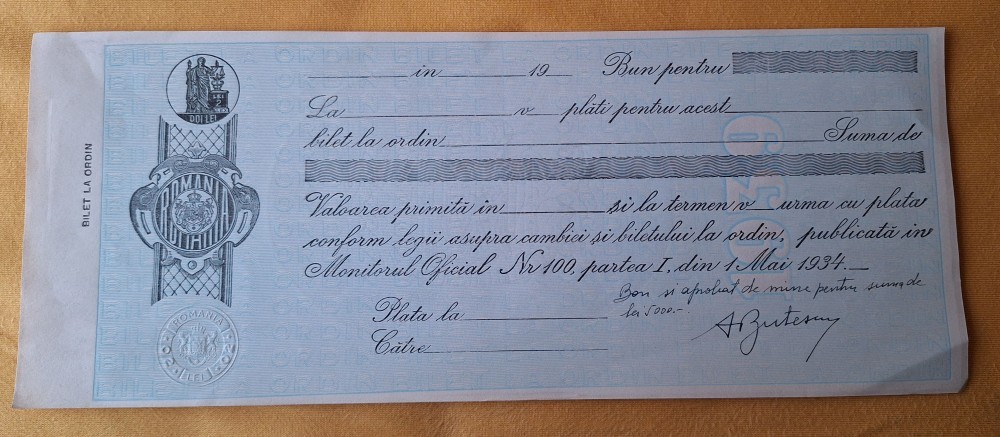 BILET LA ORDIN
LEI
2
DOI LEI
ROMANIA
ROMANIA
20 LEI 20
in 19 Bun pentru
La v plăti pentru acest
bilet la ordin Suma de
Valoarea primită în și la termen v urma cu plata
conform legii asupra cambiei și biletului la ordin, publicată în
Monitorul Oficial Nr 100, partea I, din 1 Mai 1934.
Bon si aprobat de mine pentru suma de
lei 5000.-
Plata la
Către